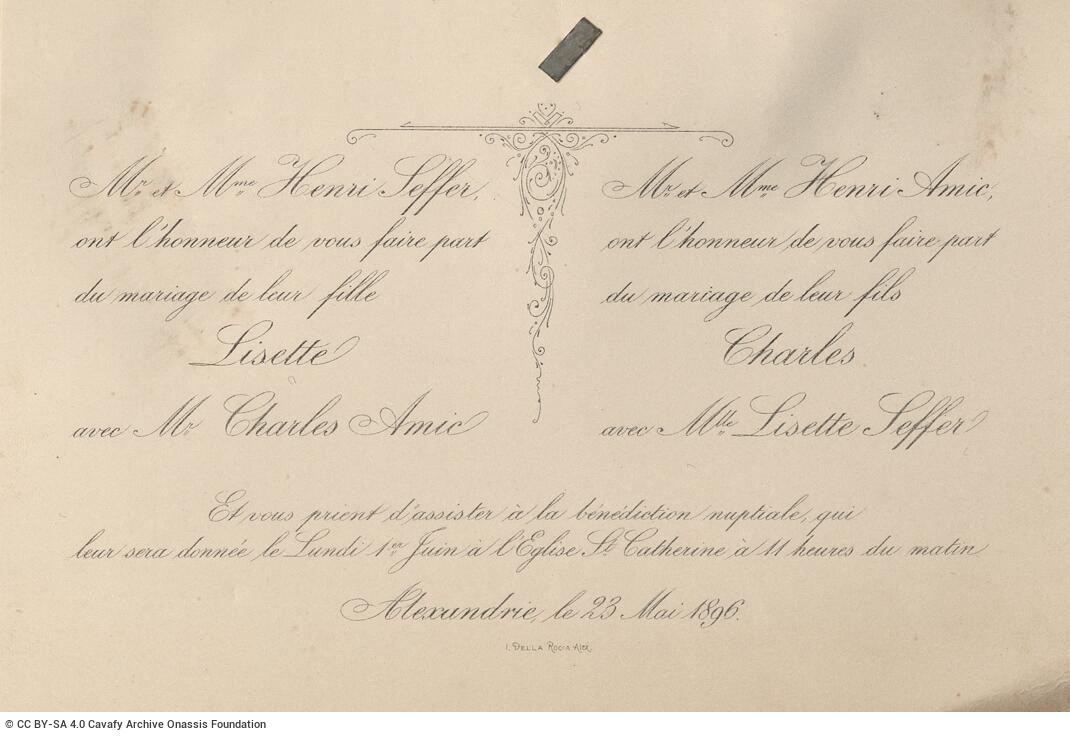 Mr et Mme Henri Seffer,
ont l'honneur de vous faire part
du mariage de leur fille
Lisette
avec Mr Charles Amic
Mr et Mme Henri Amic,
ont l'honneur de vous faire part
du mariage de leur fils
Charles
avec Mlle Lisette Seffer
Et vous prient d'assister à la bénédiction nuptiale, qui
leur sera donnée le Lundi 1er Juin à l'Eglise Ste Catherine à 11 heures du matin
Alexandrie, le 23 Mai 1896.
I. DELLA ROCCA ALEX.
© CC BY-SA 4.0 Cavafy Archive Onassis Foundation